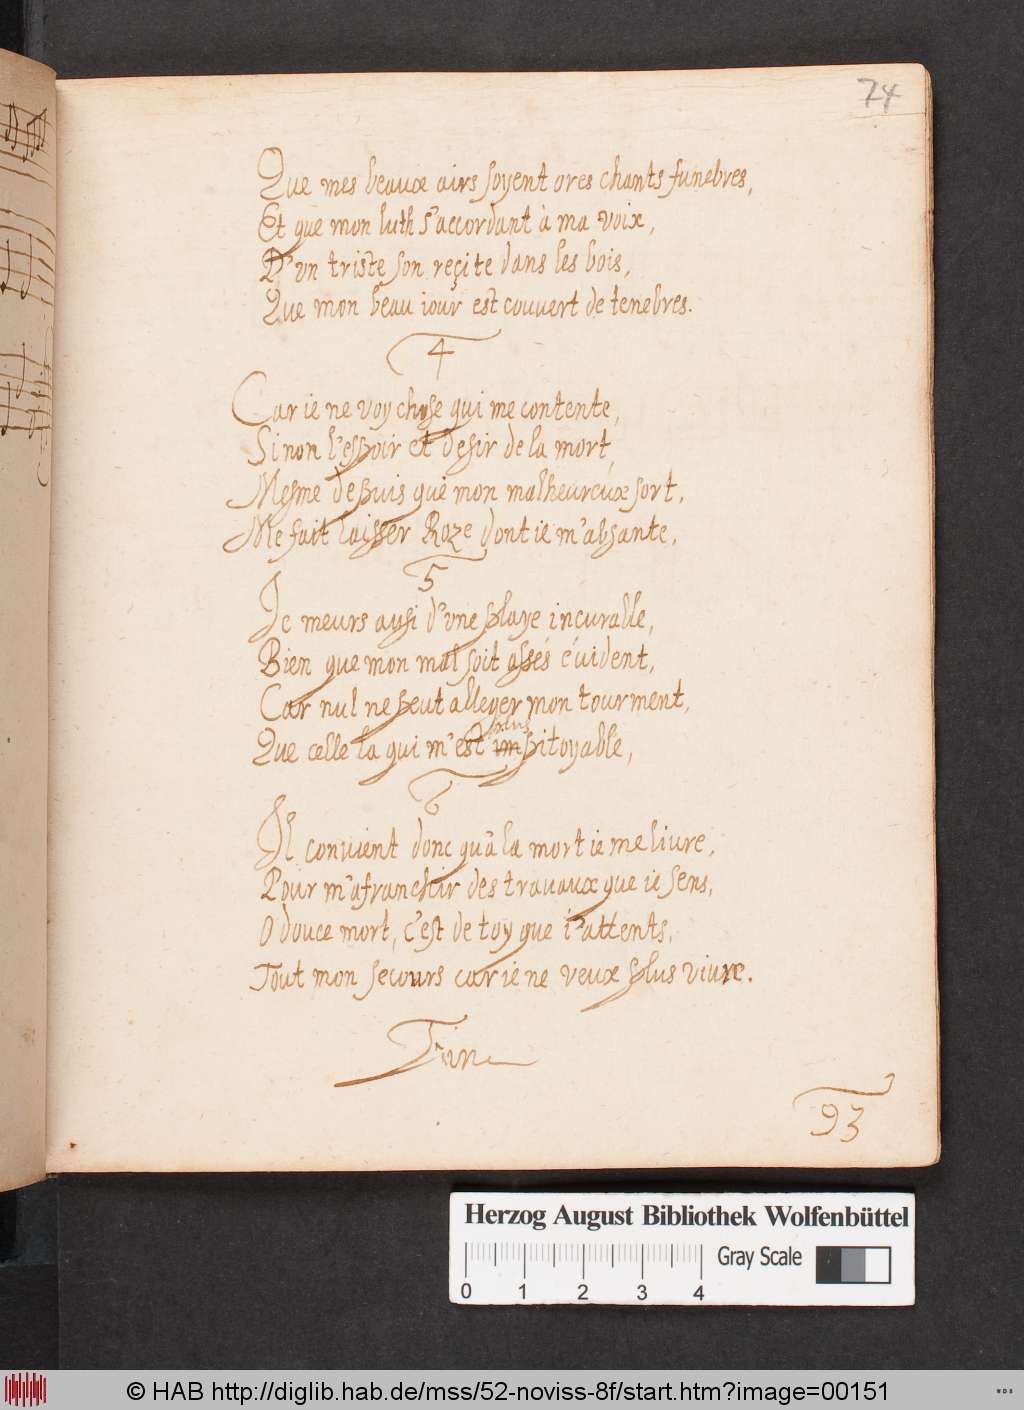 74
Que mes beaux airs soyent ores chants funebres,
Et que mon luth s'accordant à ma voix,
D'vn triste son reçite dans les bois,
Que mon beau iour est couuert de tenebres.
4
Car ie ne voy chose qui me contente,
Sinon l'espoir et desir de la mort,
Mesme depuis que mon malheureux sort,
Me fait laisser Roze dont ie m'absante,
5
Je meurs ausi d'vne playe incurable,
Bien que mon mal soit assés éuident,
Car nul ne peut alleger mon tourment,
plus
Que celle la qui m'est impitoyable,
6
Il conuient donc qu'à la mort ie me liure,
Pour m'afranchir des trauaux que ie sens,
O douce mort, c'est de toy que i'attents,
Tout mon secours car ie ne veux plus viure.
Fin
93
Herzog August Bibliothek Wolfenbüttel
Gray Scale
0 1 2 3 4
© HAB http://diglib.hab.de/mss/52-noviss-8f/start.htm?image=00151